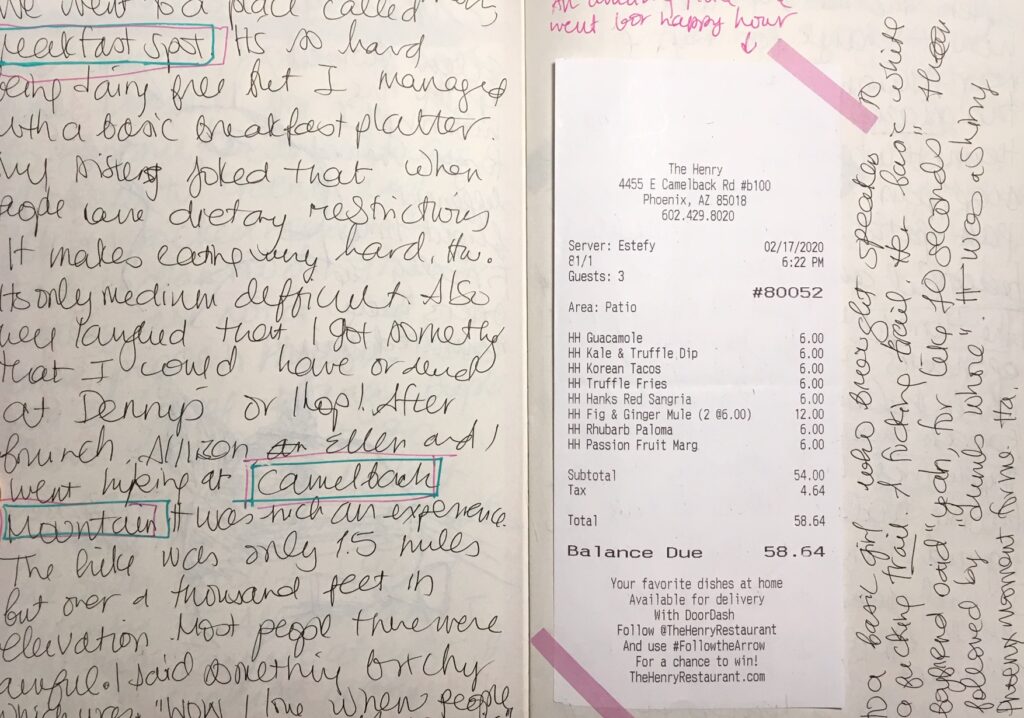 We went to a place called
Breakfast spot. Its so hard
being dairy free but I managed
with a basic breakfast platter.
My sisters joked that when
people have dietary restrictions
It makes eating very hard. Ha.
Its only medium difficult. Also
we laughed that I got something
that I could have ordered
at Dennys or Ihop! After
brunch, Allizon Ellen and I
went hiking at Camelback
Mountain It was such an experience
The hike was only 1.5 miles
but over a thousand feet in
elevation. Most people there were
awful. I said something bitchy
which was "Wow I love when people
An amazing place we
went for happy hour
The Henry
4455 E Camelback Rd #b100
Phoenix, AZ 85018
602.429.8020
Server: Estefy 02/17/2020
81/1 6:22 PM
Guests: 3
#80052
Area: Patio
HH Guacamole 6.00
HH Kale & Truffle Dip 6.00
HH Korean Tacos 6.00
HH Truffle Fries 6.00
HH Hanks Red Sangria 6.00
HH Fig & Ginger Mule (2 @6.00) 12.00
HH Rhubarb Paloma 6.00
HH Passion Fruit Marg 6.00
Subtotal 54.00
Tax 4.64
Total 58.64
Balance Due 58.64
Your favorite dishes at home
Available for delivery
With DoorDash
Follow @TheHenryRestaurant
And use #FollowtheArrow
For a chance to win!
TheHenryRestaurant.com
to a basic girl who brought speakers to
a fucking trail. A fucking trail. Her basic white
boyfriend said "yah, for like 10 seconds" then
followed by "dumb whore". It was a shiny
moment for me. Ha.